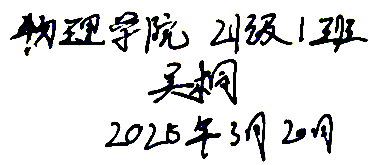 物理学院 21级1班
吴桐
2025年3月20月